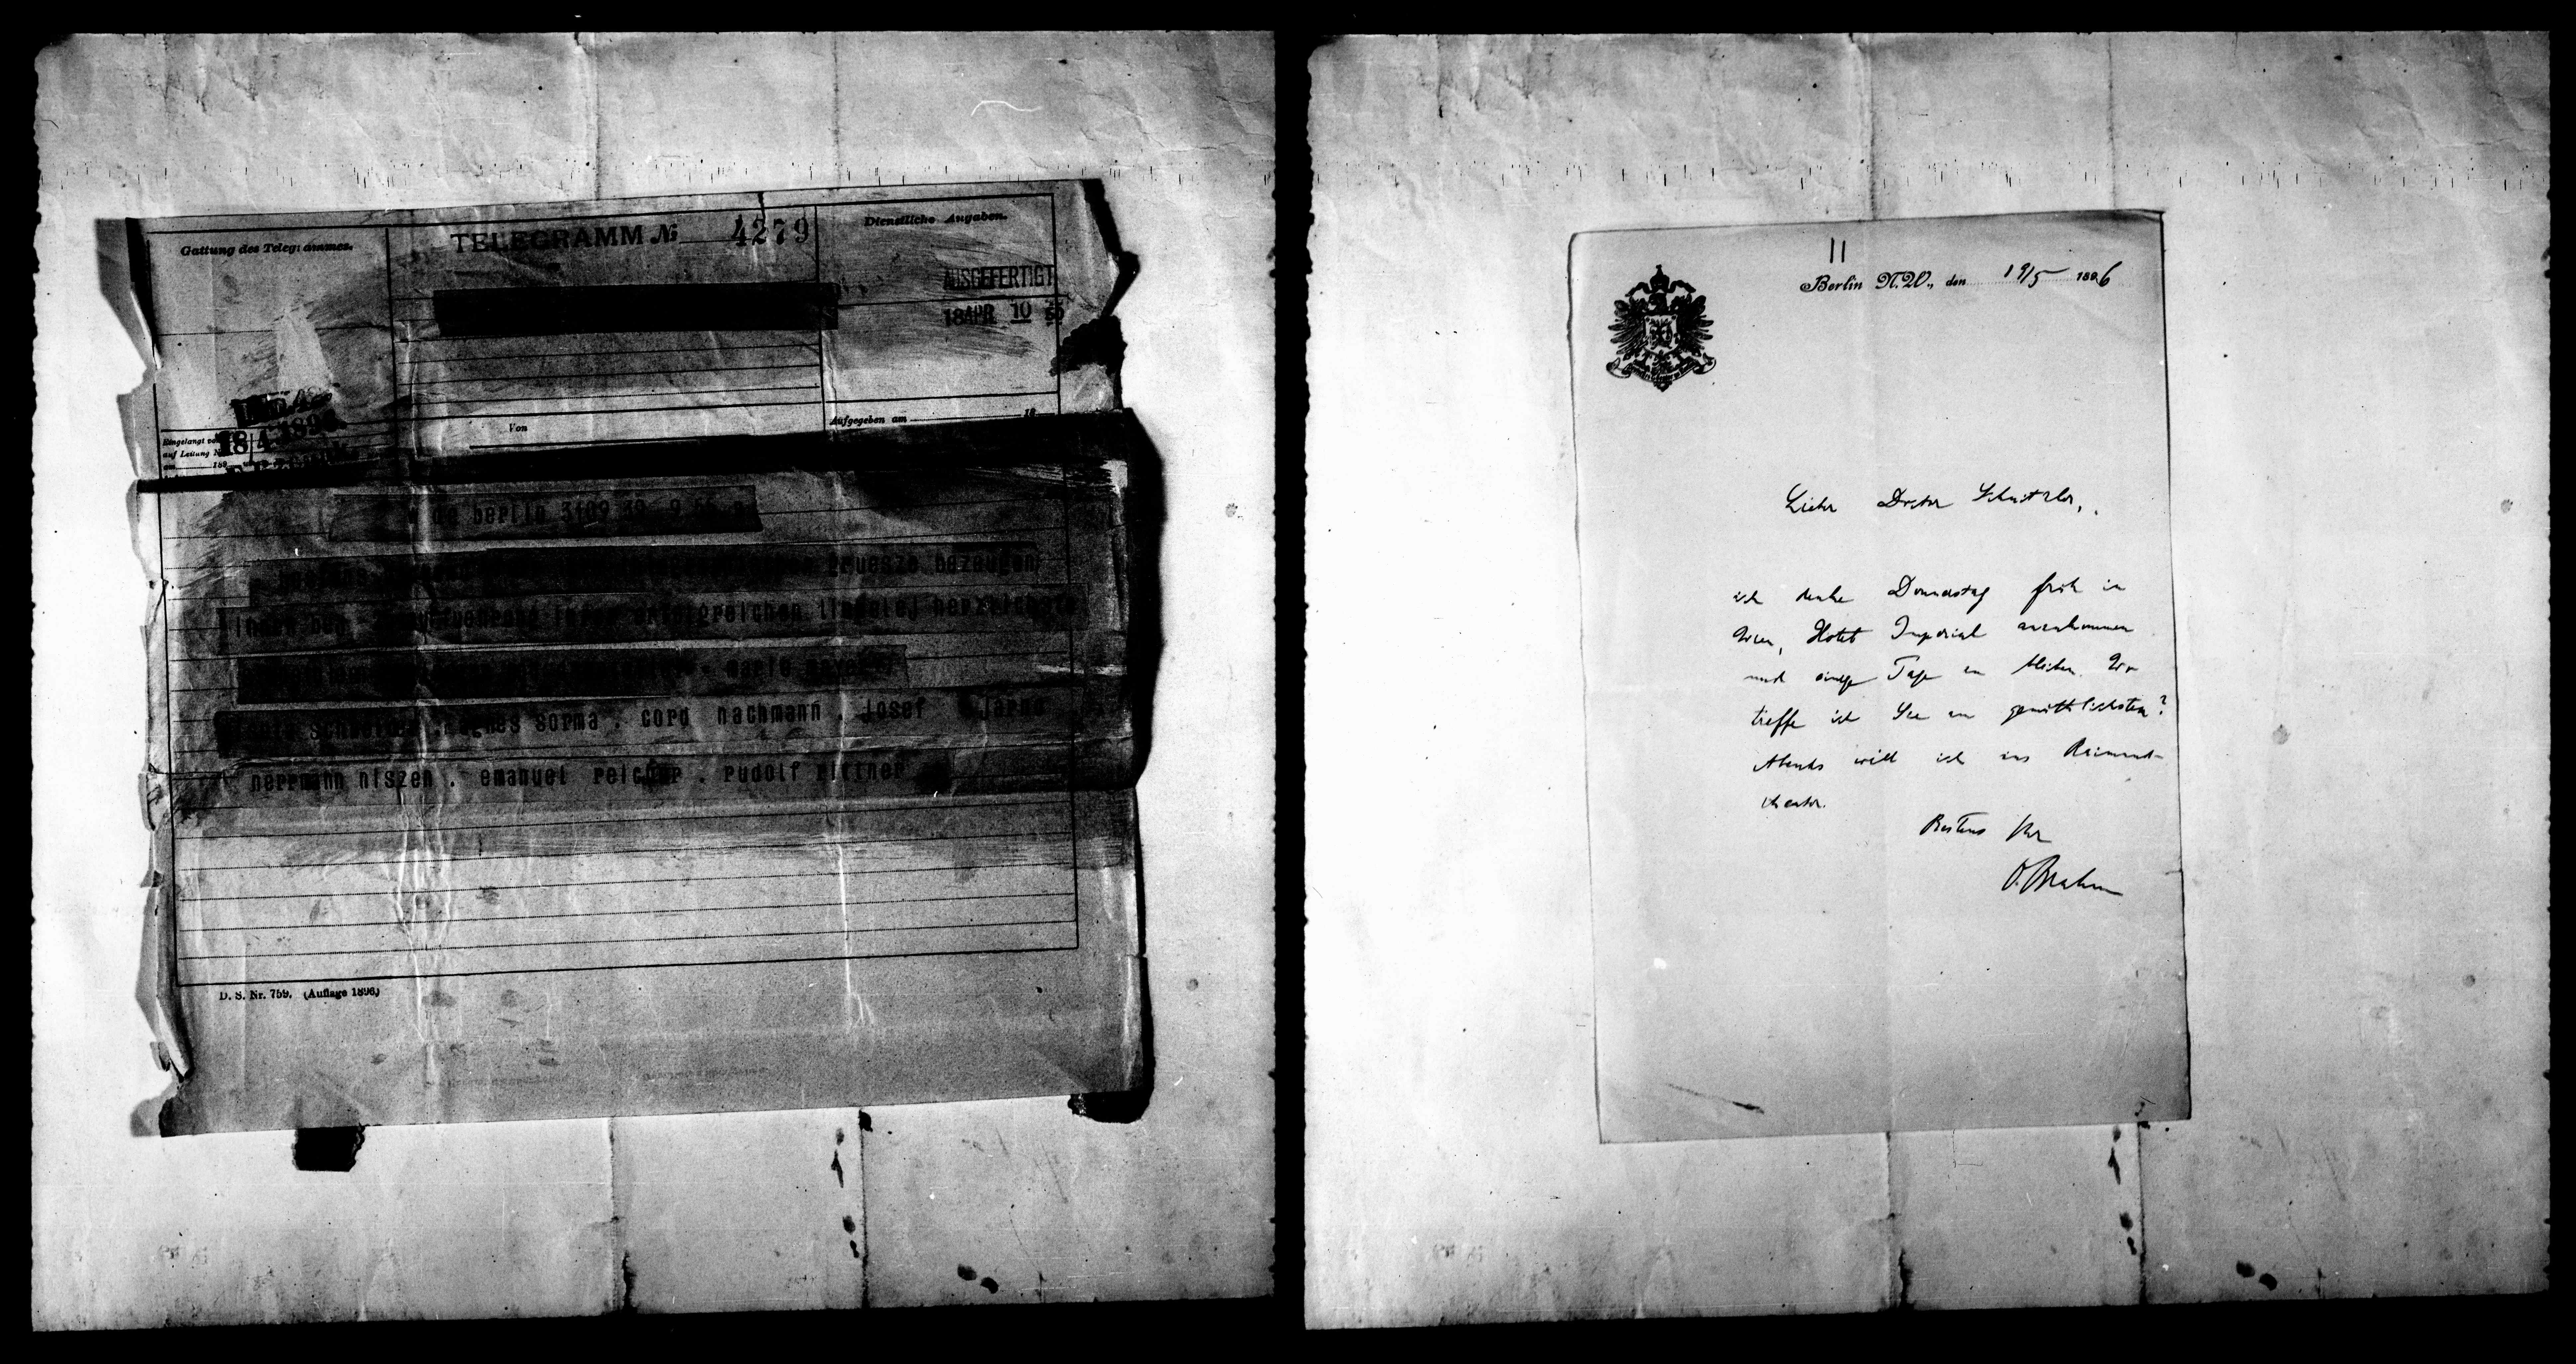 Gattung des Telegrammes.
TELEGRAMM № 4279
Dienstliche Angaben.
AUSGEFERTIGT
18 APR 10 55
Eingelangt von
auf Leitung N
am 189
18/4 1896
Von
Aufgegeben am 18
de berlin 3109 39 9 55
gruesze bezeugen
ihnen erfolgreichen liebelej herzlichste
marie meyer
schneider . agnes sorma . cord nachmann . josef jarno
herrmann niszen . emanuel reicher . rudolf rittner
D. S. Nr. 759. (Auflage 1896)
11
Berlin N.W., den 19/5 1896
Lieber Doctor Schnitzler,
ich denke Donnerstag früh in
Wien, Hotel Imperial anzukommen
und einige Tage zu bleiben. Wo
treffe ich Sie am gemüthlichsten?
Abends will ich ins Raimund-
theater.
Bestens Ihr
O. Brahm